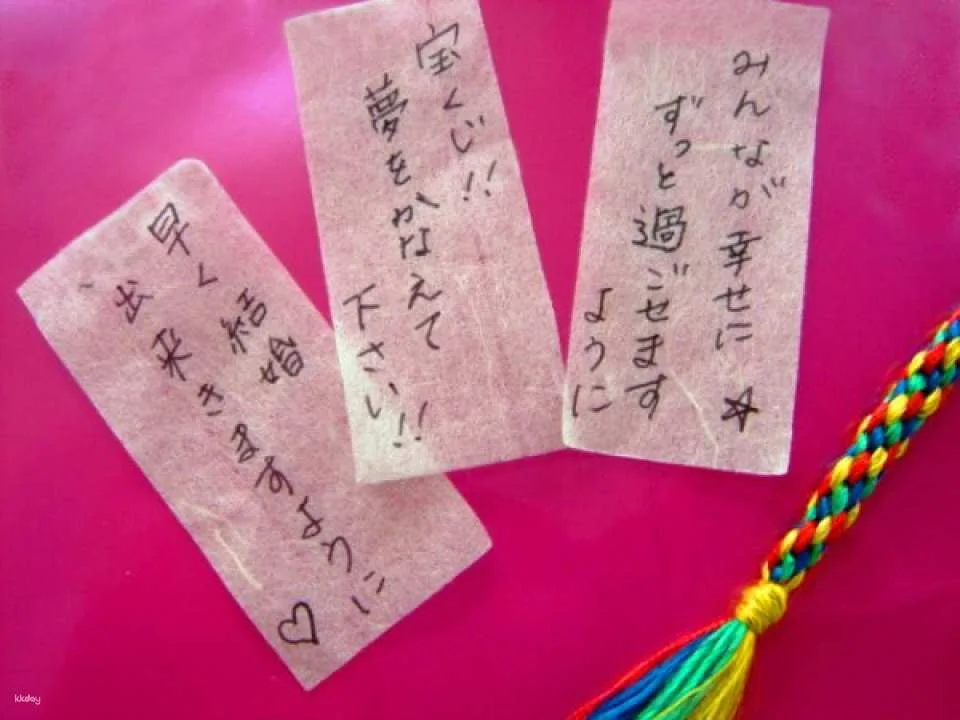 早く結婚
出来きますように♡
宝くじ!!
夢をかなえて
下さい!!
みんなが幸せに☆
ずっと過ごせます
ように
kkday